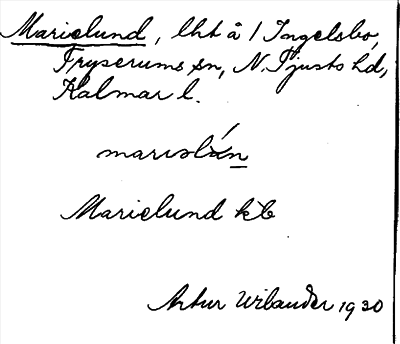 Marielund, lht å 1 Ingelsbo,
Fryserums sn, N. Tjusts hd,
Kalmar l.
Marielund kb
Artur Wilander 1930